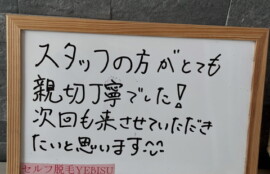 スタッフの方がとても
親切丁寧でした!
次回も来させていただき
たいと思います
セルフ脱毛YEBISU